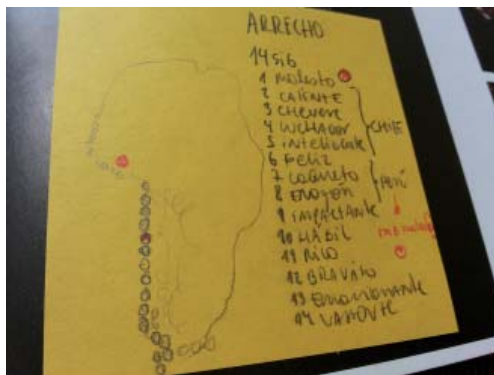 ARRECHO
14 sib
1 Molesto
2 CALIENTE
3 CHEVERE
4 LUCHADOR
5 INTELIGENTE
CHILE
6 FELIZ
7 COQUETO
PERÚ
9 IMPACTANTE
10 HÁBIL
11 RICO
12 BRAVATO
13 EMOCIONANTE
14 VALIENTE